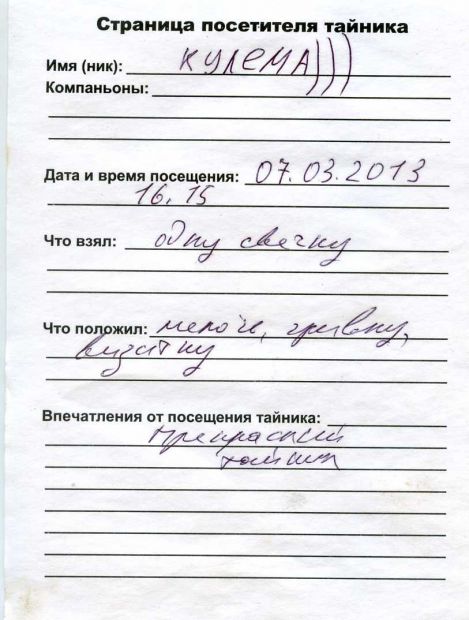 Страница посетителя тайника
Имя (ник): КУЛЕМА)))
Компаньоны:
Дата и время посещения: 07.03.2013
16.15
Что взял: одну свечку
Что положил: мелочь, гривну,
визитку
Впечатления от посещения тайника:
прекрасный
тайник